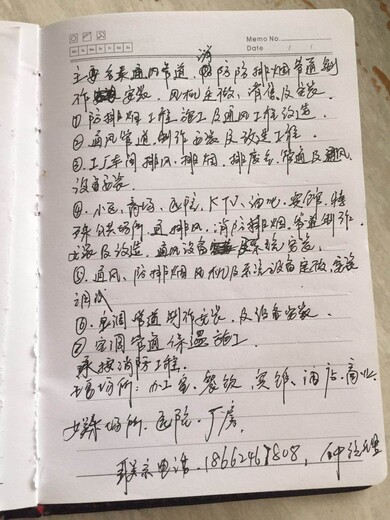 Memo No.
Date / /
主要承接通风管道、消防防排烟管道制
作安装,风机定做,消售及安装.
① 防排烟工程施工及通风工程改造.
② 通风管道制作安装及改造工程.
③ 工厂车间排风、排烟、排尘、管道及通风
设备安装.
④ 小区、商场、医院、KTV、酒吧、宾馆、
公共场所通、排风、消防排烟、管道制作
安装及改造,通风设备及系统安装.
⑤ 通风、防排烟风机及系统设备定做,安装
调试
⑥ 空调管道制作安装,及设备安装.
⑦ 空调管道保温施工.
承接消防工程.
场所:办公室、餐饮、宾馆、酒店、商业.
娱乐场所、医院、厂房.
联系电话 18662467808,